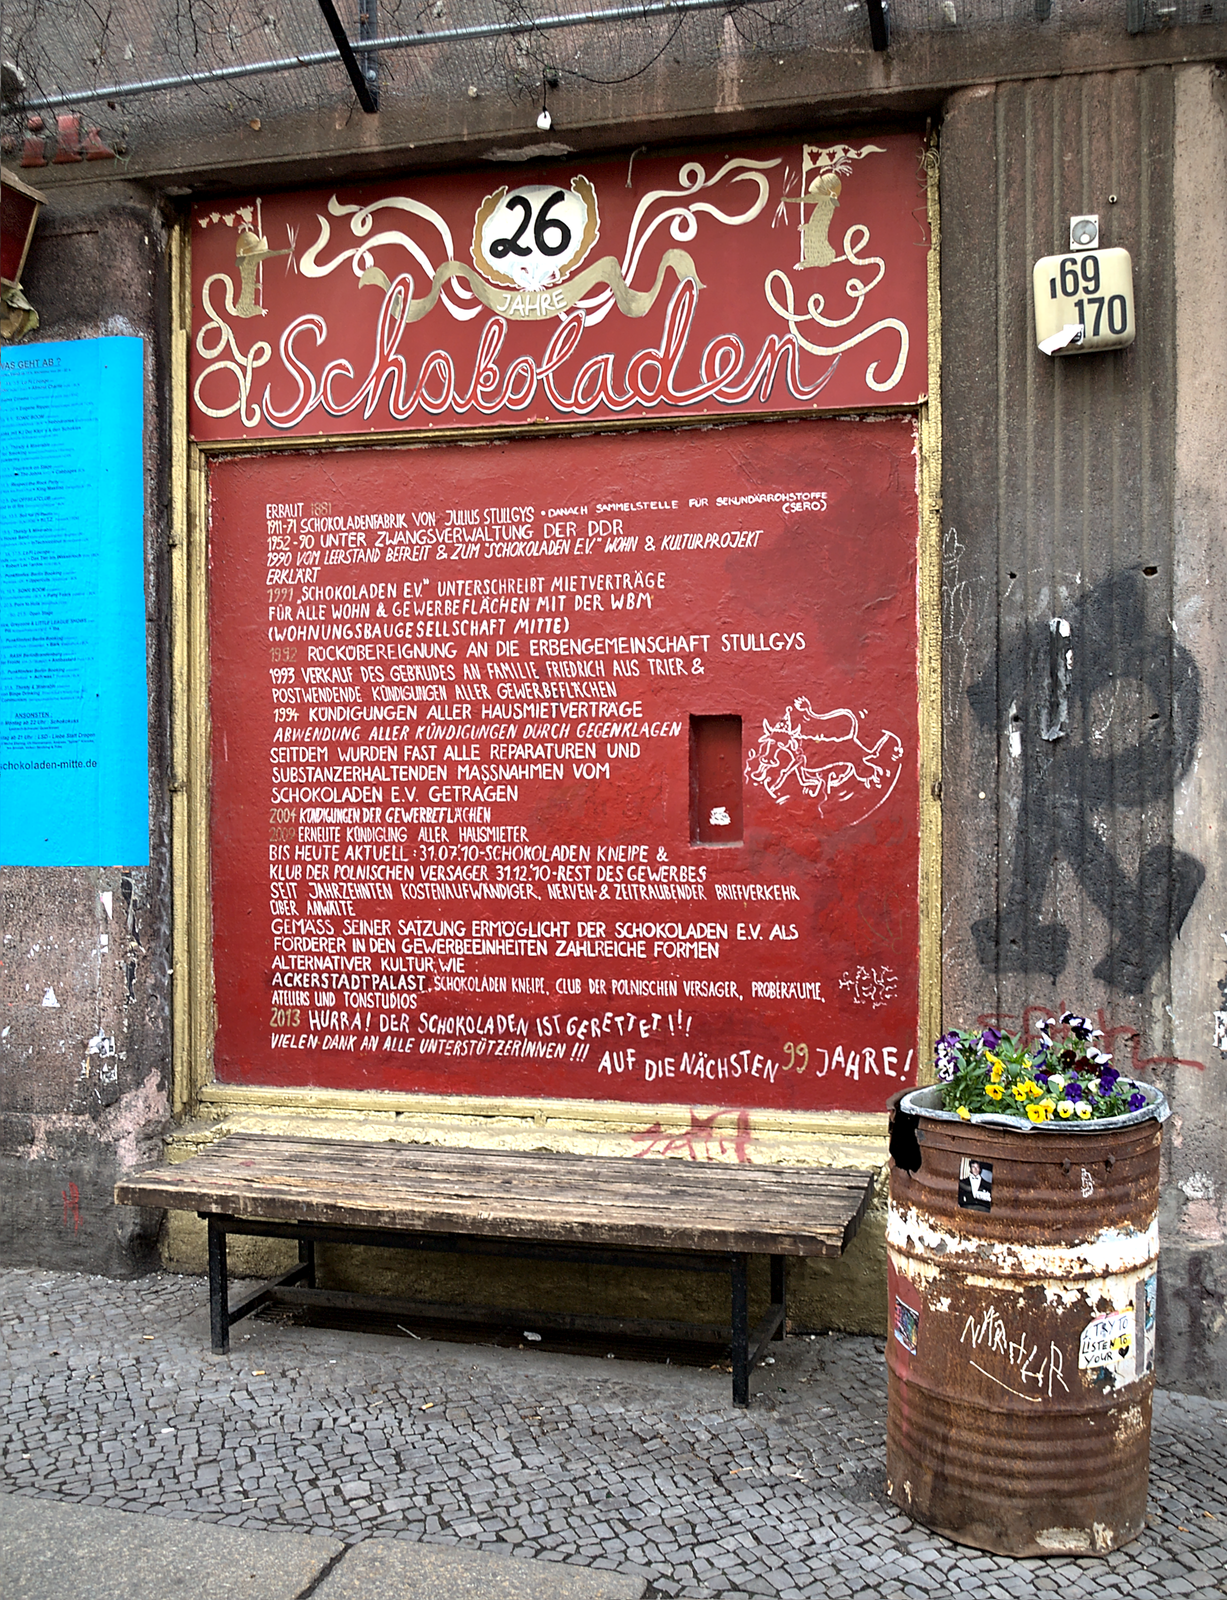 26
JAHRE
Schokoladen
169
170
WAS GEHT AB ?
ANSONSTEN
schokoladen-mitte.de
ERBAUT 1881
1911-71 SCHOKOLADENFABRIK VON JULIUS STULLGYS • DANACH SAMMELSTELLE FÜR SEKUNDÄRROHSTOFFE
(SERO)
1952-90 UNTER ZWANGSVERWALTUNG DER DDR
1990 VOM LEERSTAND BEFREIT & ZUM "SCHOKOLADEN E.V." WOHN & KULTURPROJEKT
ERKLÄRT
1991 „SCHOKOLADEN E.V." UNTERSCHREIBT MIETVERTRÄGE
FÜR ALLE WOHN & GEWERBEFLÄCHEN MIT DER WBM
(WOHNUNGSBAUGESELLSCHAFT MITTE)
1992 RÜCKÜBEREIGNUNG AN DIE ERBENGEMEINSCHAFT STULLGYS
1993 VERKAUF DES GEBÄUDES AN FAMILIE FRIEDRICH AUS TRIER &
POSTWENDENDE KÜNDIGUNGEN ALLER GEWERBEFLÄCHEN
1994 KÜNDIGUNGEN ALLER HAUSMIETVERTRÄGE
ABWENDUNG ALLER KÜNDIGUNGEN DURCH GEGENKLAGEN
SEITDEM WURDEN FAST ALLE REPARATUREN UND
SUBSTANZERHALTENDEN MASSNAHMEN VOM
SCHOKOLADEN E.V. GETRAGEN
2004 KÜNDIGUNGEN DER GEWERBEFLÄCHEN
2009 ERNEUTE KÜNDIGUNG ALLER HAUSMIETER
BIS HEUTE AKTUELL : 31.07.'10-SCHOKOLADEN KNEIPE &
KLUB DER POLNISCHEN VERSAGER 31.12.'10-REST DES GEWERBES
SEIT JAHRZEHNTEN KOSTENAUFWÄNDIGER, NERVEN-& ZEITRAUBENDER BRIEFVERKEHR
ÜBER ANWÄLTE
GEMÄSS SEINER SATZUNG ERMÖGLICHT DER SCHOKOLADEN E.V. ALS
FÖRDERER IN DEN GEWERBEEINHEITEN ZAHLREICHE FORMEN
ALTERNATIVER KULTUR, WIE
ACKERSTADTPALAST, SCHOKOLADEN KNEIPE, CLUB DER POLNISCHEN VERSAGER, PROBERÄUME,
ATELIERS UND TONSTUDIOS
2013 HURRA! DER SCHOKOLADEN IST GERETTET!!!
VIELEN DANK AN ALLE UNTERSTÜTZERINNEN !!!
AUF DIE NÄCHSTEN 99 JAHRE!
I TRY TO
LISTEN TO
YOUR